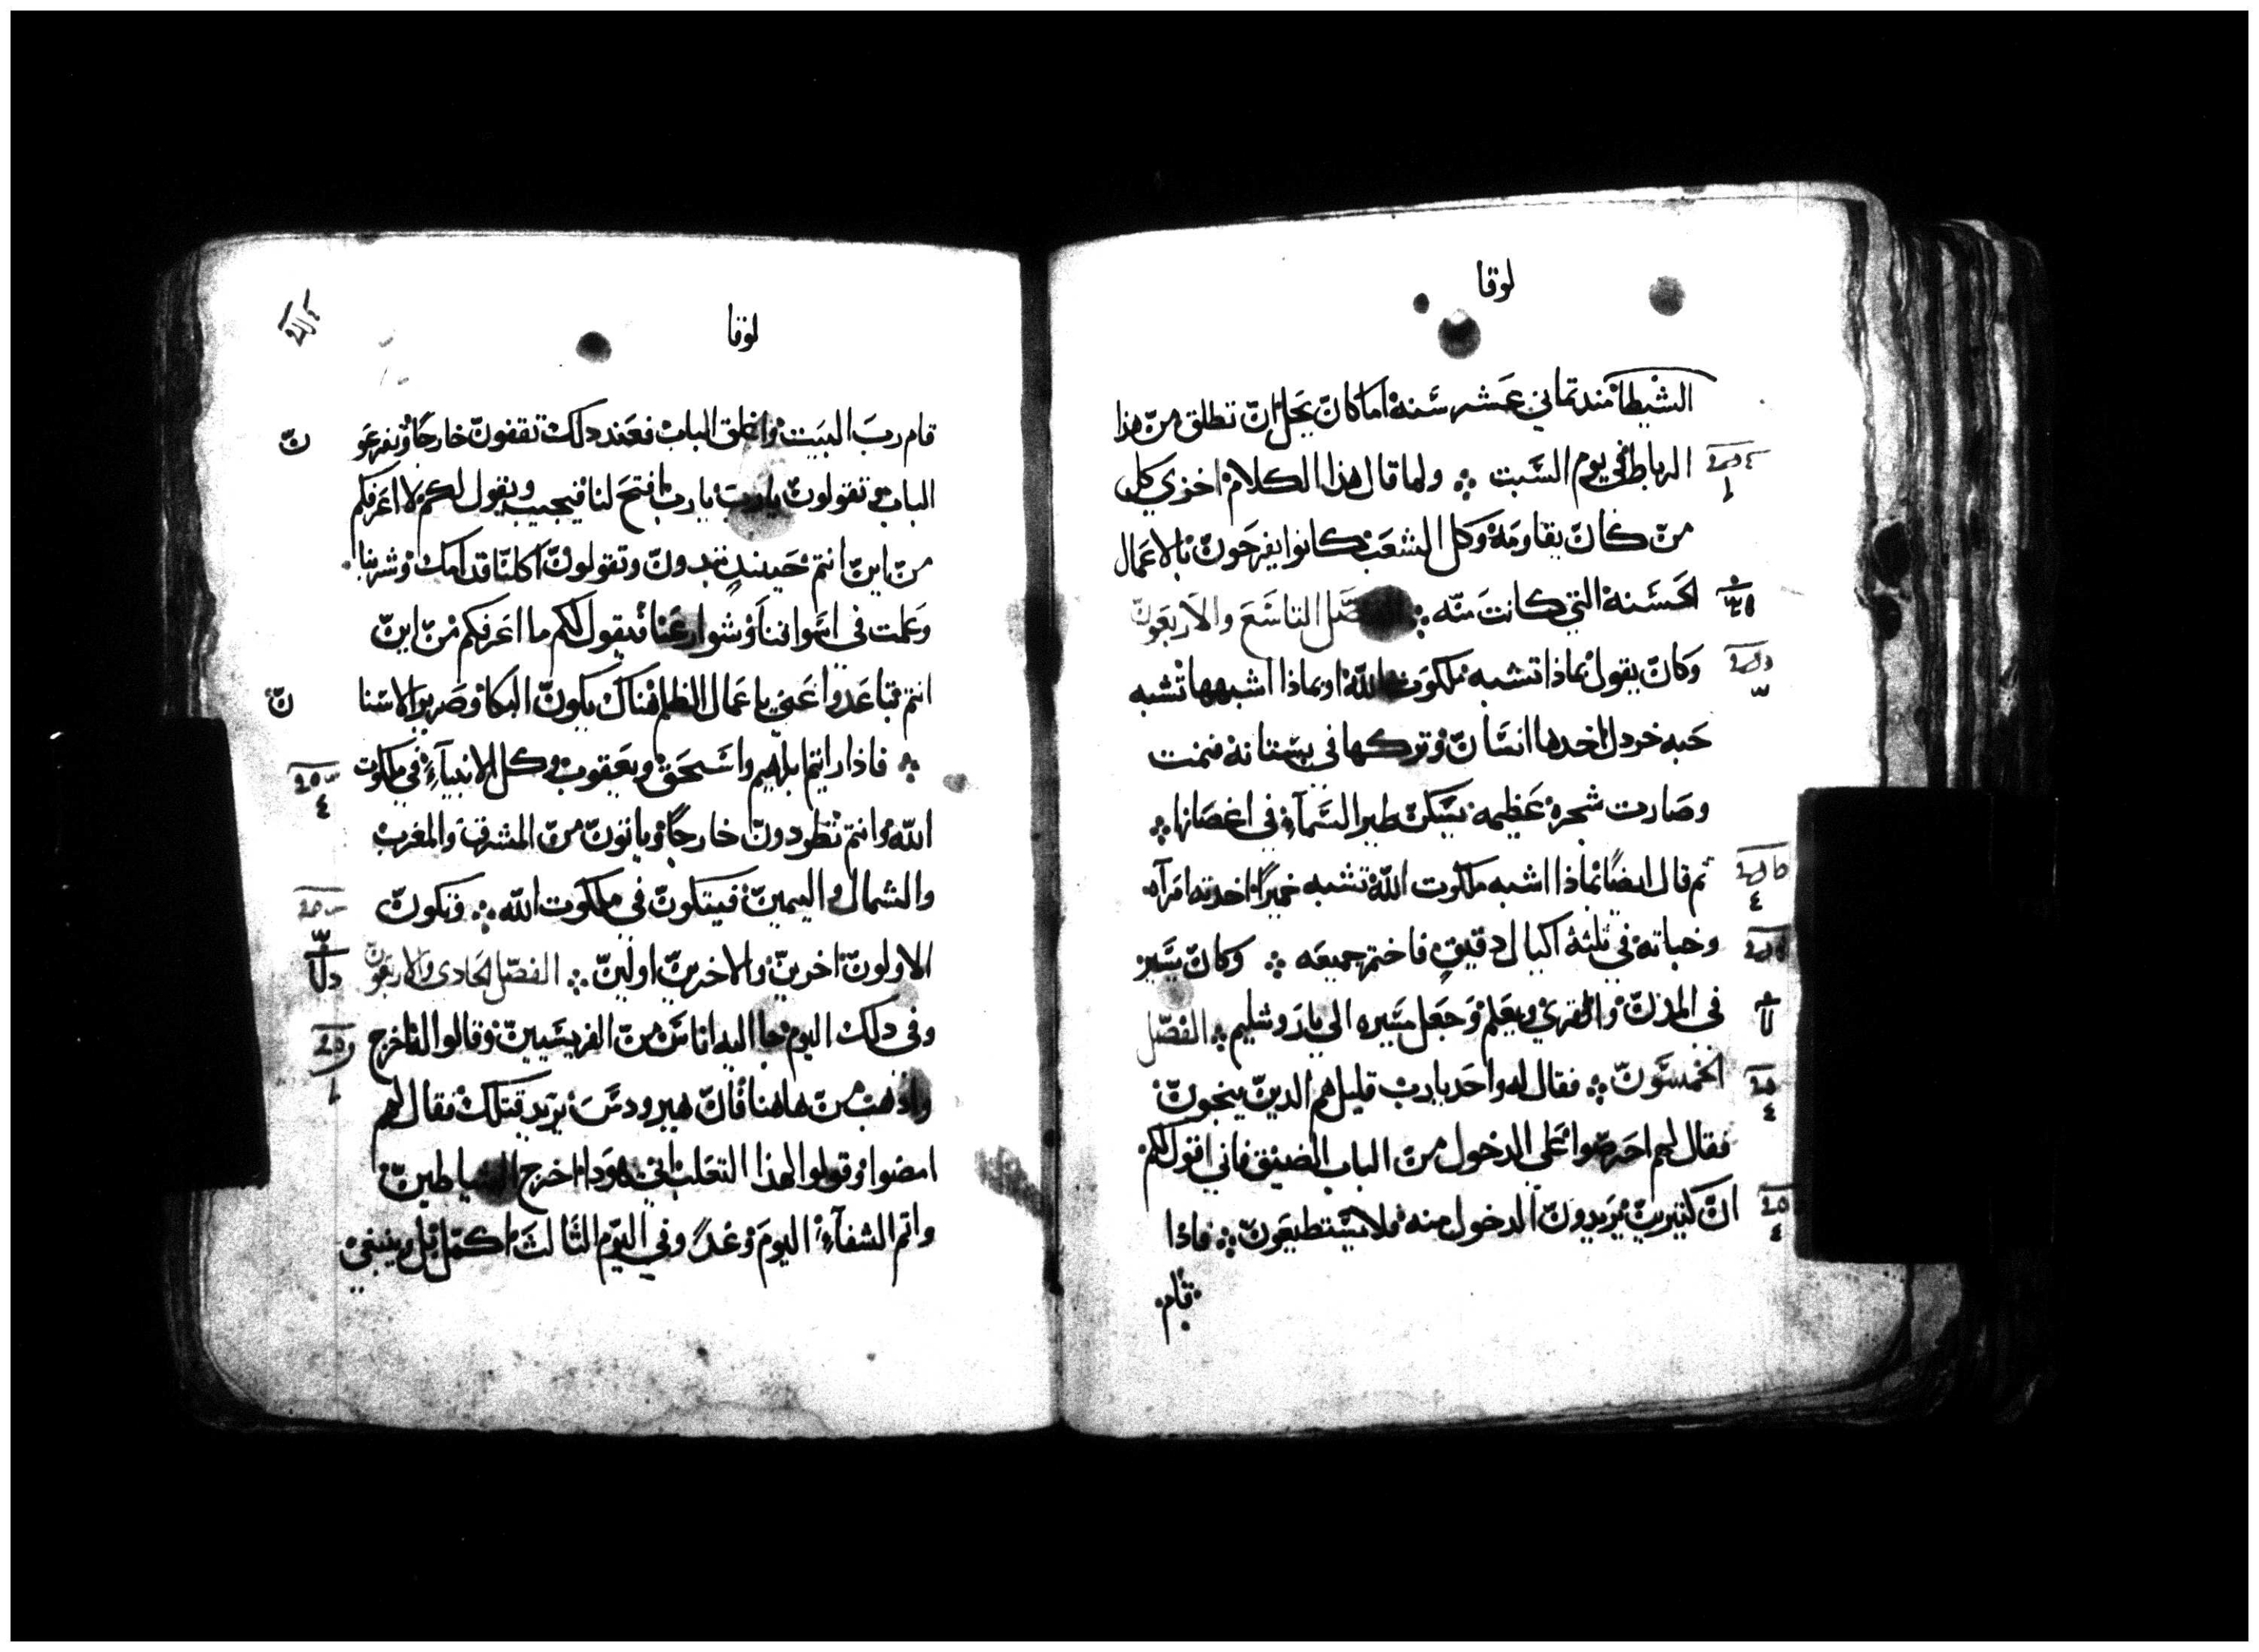 لوقا
الشيطان مند تماني عشر سنه اما كان يحل ان تطلق من هذا
الرباط في يوم السبت ولما قال هذا الكلام اخزي كل
من كان يقاومه وكل الشعب كانوا يفرحون بالاعمال
الحسنه التي كانت منه الفصل التاسع والاربعون
وكان يقول بماذا تشبه ملكوت الله او بماذا اشبهها تشبه
حبه خردل اخدها انسان وتركها في بستانه فنمت
وصارت شجره عظيمه يسكن طير السماء في اغصانها
تم قال ايضا بماذا اشبه ملكوت الله تشبه خميرا اخدته امرآه
وخباته في ثلثة اكيال دقيق فاختمر جميعه وكان يسير
في المدن والقري ويعلم وجعل مسيره الي ياروشليم الفصل
الخمسون فقال له واحد يا رب قليل هم الدين ينجون
فقال لهم احرصوا علي الدخول من الباب الضيق فاني اقول لكم
ان كتيرين يريدون الدخول منه فلا يستطيعون فاذا
قام
لوقا
قام رب البيت واغلق الباب فعند دلك تقفون خارجا وتقرعو
ن
الباب وتقولون يا رب يا رب افتح لنا فيجيب ويقول لكم لا اعرفكم
من اين انتم حينيد تبدون وتقولون اكلنا قدامك وشربنا
وعلمت في اسواقنا وشوارعنا فيقول لكم ما اعرفكم من اين
انتم تباعدوا عني يا عمال الظلم هناك يكون البكا وصرير الاسنا
ن
فاذا رايتم ابرهيم واسحق ويعقوب وكل الانبيآء في ملكوت
الله وانتم تطردون خارجا وياتون من المشرق والمغرب
والشمال واليمين فيتكون في ملكوت الله فتكون
الاولون اخرين والاخرين اولين الفصل الحادي والاربعون
وفي دلك اليوم جا اليه اناس من الفريسيين وقالوا له اخرج
واذهب من هاهنا فان هيرودس يريد قتلك فقال لهم
امضوا وقولوا لهذا التعلب اني هودا اخرج الشياطين
واتم الشفآء اليوم وغدا وفي اليوم التالت اكمل بل وينبغي